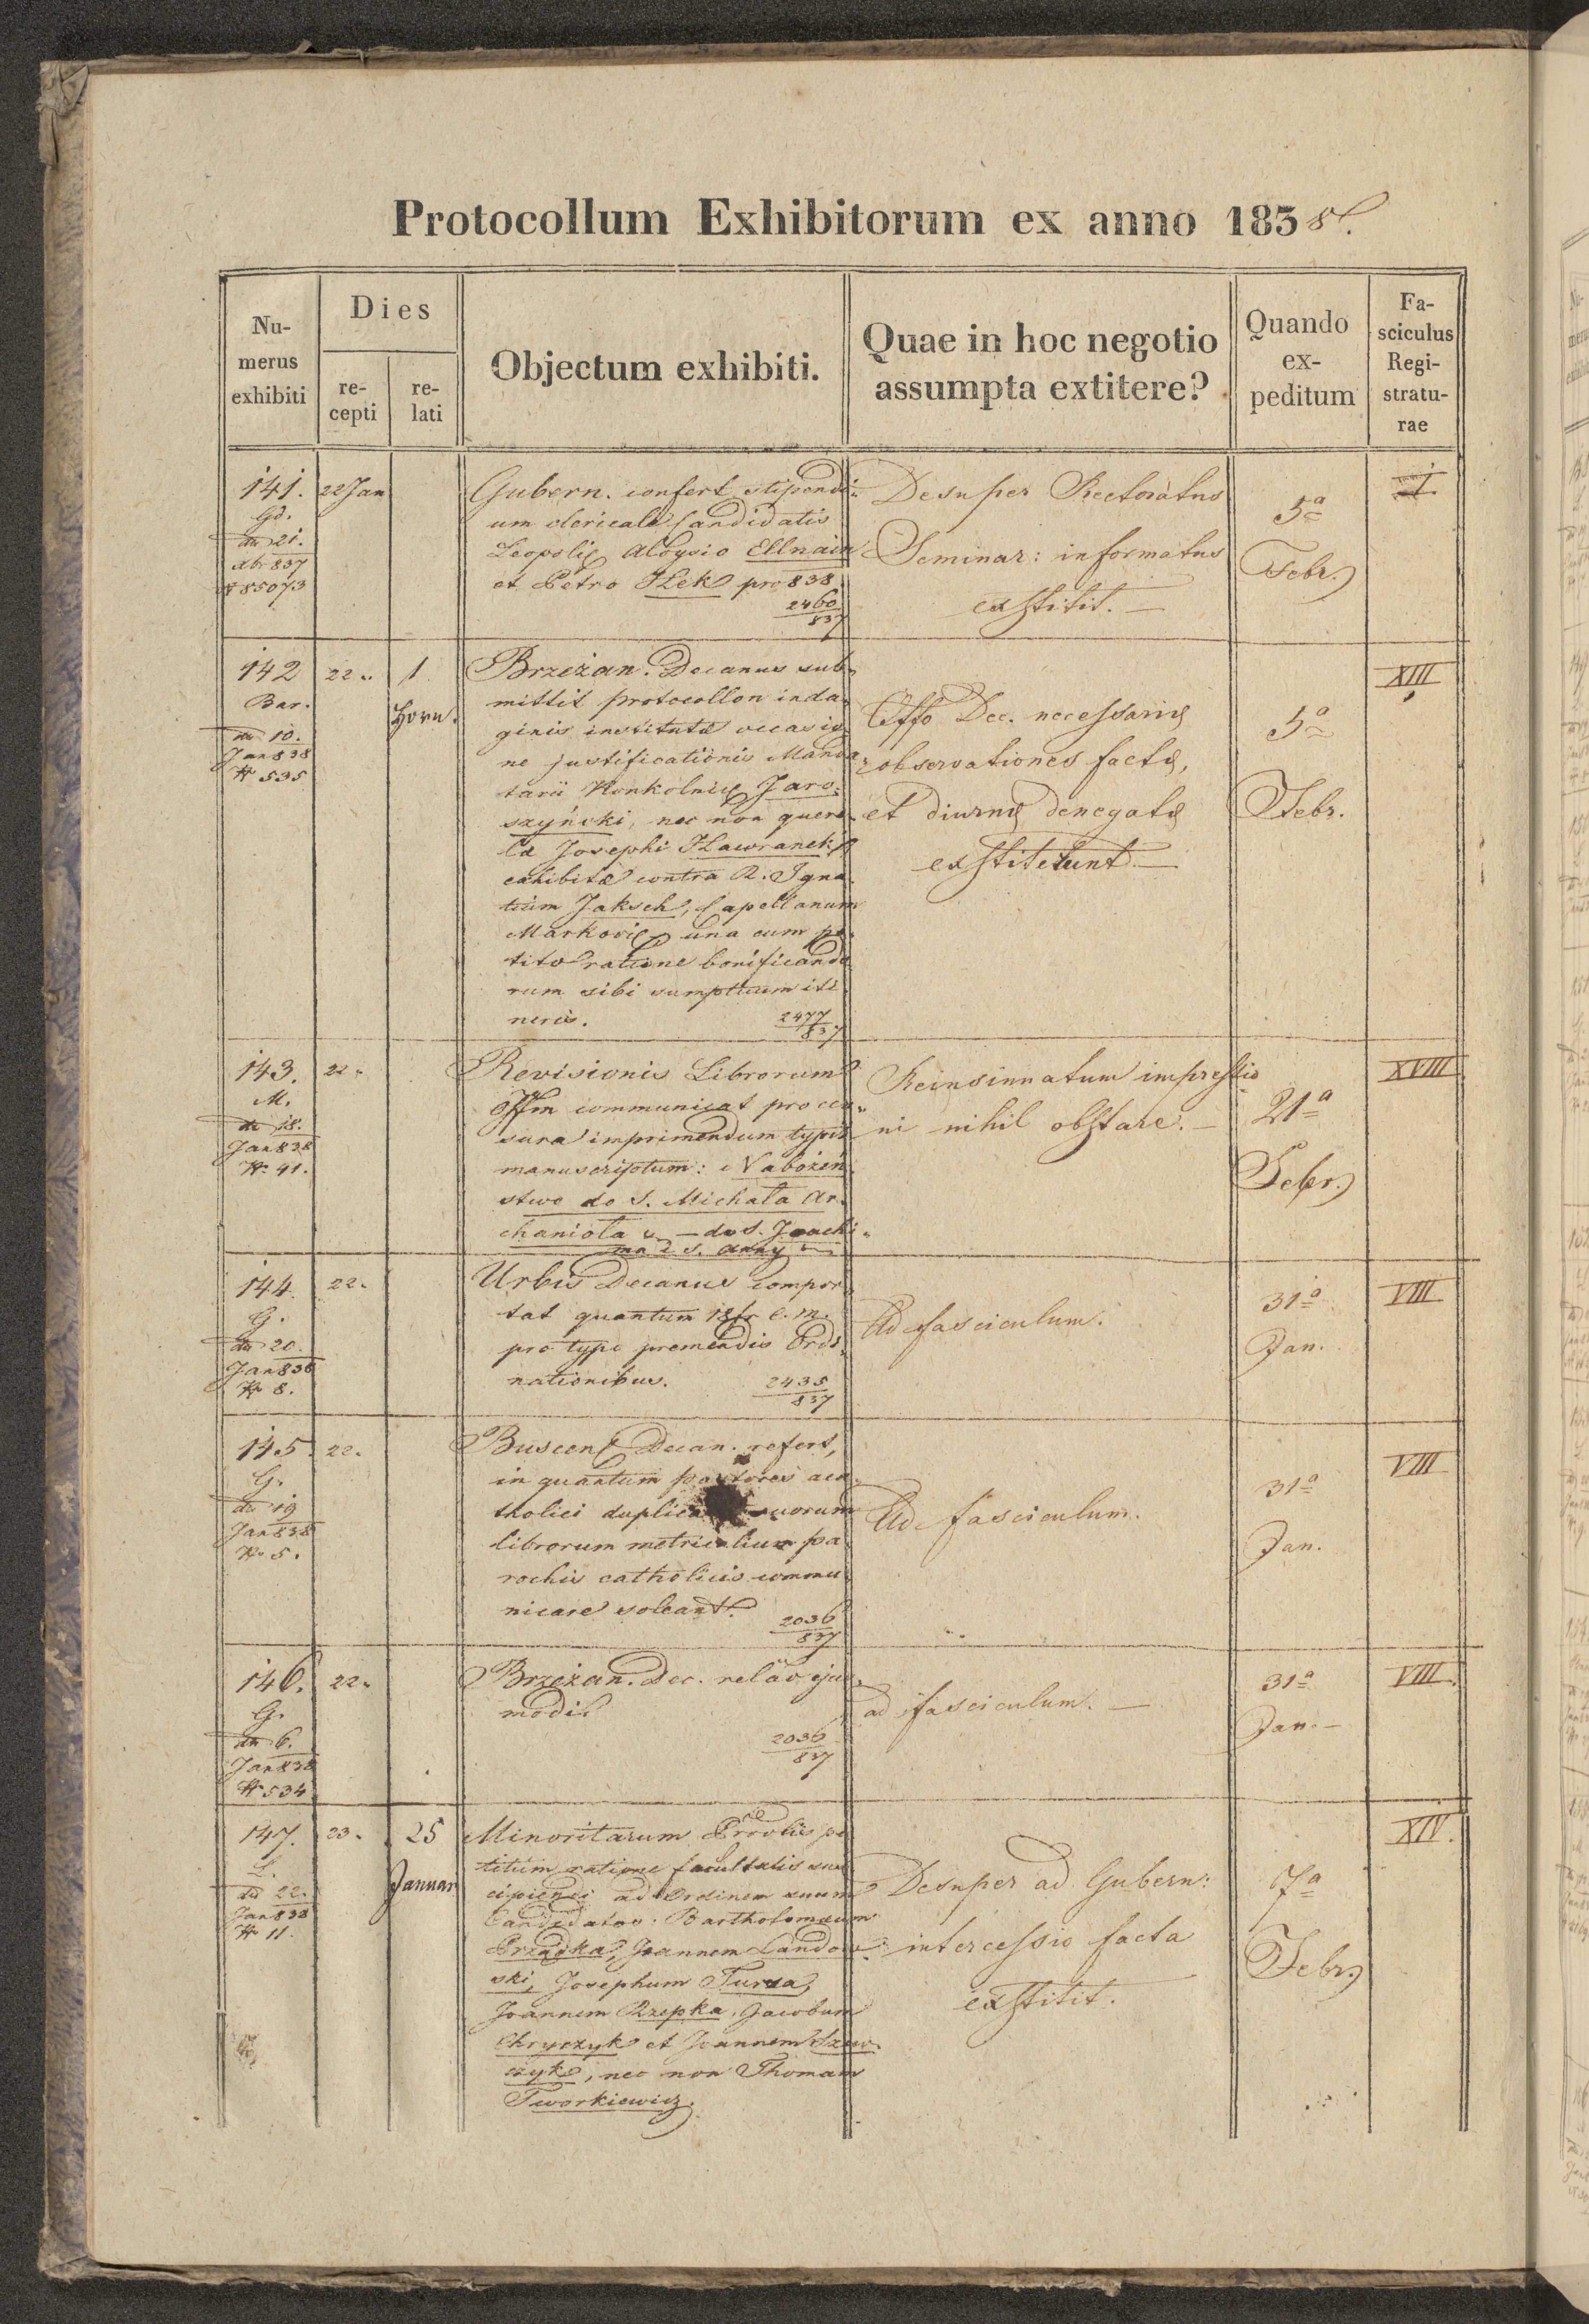 Protocollum Exhibitorum ex anno 1838.
Nu-
merus
exhibiti
Dies
re-
cepti
re-
lati
Objectum exhibiti.
Quae in hoc negotio
assumpta extitere?
Quando
ex-
peditum
Fa-
sciculus
Regi-
stratu-
rae
141.
Gd.
dd 21.
Xbr 837
# 85073
22 Jan
Gubern. confert stipendi-
um clericale Candidatis
Leopoliens Aloysio Ellnain
et Petro Ilek pro 838.
2460
837
Desuper Rectoratus
Seminar: informatus
exstitit. —
5a
Febr.
I
142
Bar.
dd 10.
Jan 838
# 535
22 "
1
Horn.
Brzeżan. Decanus sub-
mittit protocollon inda-
ginis institutae occasio-
ne justificationis Manda-
tarii Konkolnic Jaro-
szyński, nec non quere-
lae Josephi Hawranek,
exhibitae contra R. Igna-
tium Jaksch, Capellanum
Markovien una cum pe-
tito ratione bonificando-
rum sibi sumptuum iti-
neris.
2477
837
Offo Dec. necessariae
observationes factae,
et diurnae denegatae
exstiterunt —
5a
Febr.
XIII
143.
M.
dd 18.
Jan 838
# 41.
22 "
Revisionis Librorum
Offm communicat pro cen-
sura imprimendum typis
manuscriptum: Nabożeń-
stwo do S. Michała Ar-
chanioła — do S. Joachi-
ma i S. Anny
Reinsinuatum impressio
ni nihil obstare. —
21a
Febr.
XVIII
144.
G.
dd 20.
Jan 838
# 8.
22 "
Urbis Decanus compor-
tat quantum 18 fr c. m.
pro typo premendis Ordi-
nationibus.
2435
837
Ad fasciculum.
31a
Jan.
VIII
145.
G.
dd 19
Jan 838
# 5.
22 "
Buscen Decan. refert,
in quantum pastores aca-
tholici duplica suorum
librorum metricalium pa-
rochis catholicis commu-
nicare soleant.
2036
837
Ad fasciculum.
31a
Jan.
VIII
146.
G.
dd 6.
Jan 838
# 534
22 "
Brzeżan. Dec. relao ejus-
modi
2036
837
ad fasciculum. —
31a
Jan. —
VIII.
147.
L.
dd 22.
Jan 838
# 11.
23 "
25
Januar
Minoritarum Provlis pe-
titum ratione facultatis sus-
cipiendi ad Ordinem suum
Candidatos: Bartholomaeum
Prządka, Joannem Landow-
ski, Josephum Tursa,
Joannem Rzepka, Jacobum
Chryczyk et Joannem Szew-
czyk, nec non Thomam
Tworkiewicz.
Desuper ad Gubern:
intercessio facta
exstitit.
7a
Febr.
XIV.